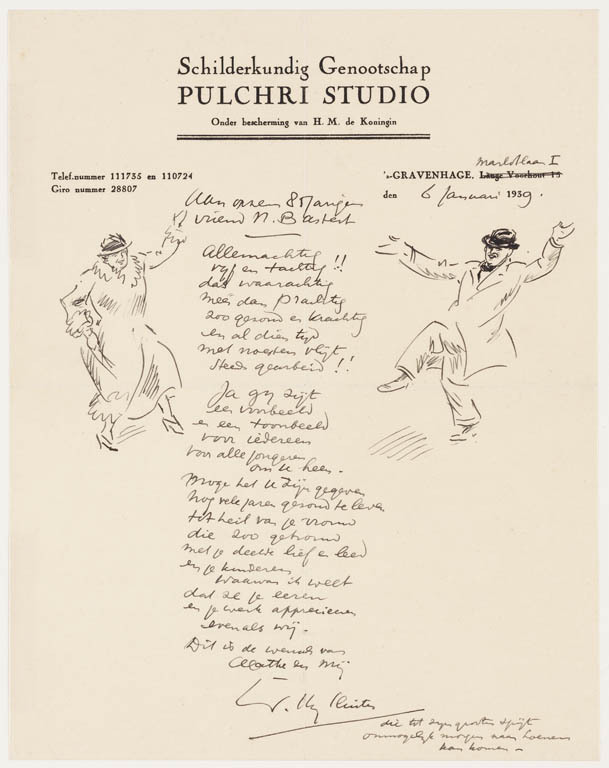 Schilderkundig Genootschap
PULCHRI STUDIO
Onder bescherming van H. M. de Koningin
Telef.nummer 111735 en 110724
Giro nummer 28807
's-GRAVENHAGE, Lange Voorhout 15
den 6 Januari 1939.
Aan onzen 85jarigen
vriend N. Bastert
Allemachtig
vyf en tachtig !!
dat waarachtig
meer dan prachtig
zoo gezond en krachtig
en al dien tyd
met noesten vlyt
steeds gearbeid !!
Ja gy zyt
een voorbeeld
en een toonbeeld
voor iedereen
voor alle jongeren
om U heen.
Moge het U zyn gegeven
nog vele jaren gezond te leven
tot heil van je vrouw
die zoo getrouw
met je deelde lief en leed
en je kinderen
waarvan ik weet
dat ze je eeren
en je werk apprecieeren
evenals wy.
Dit is de wensch van
en my
die tot zyn grooten spyt
onmogelyk morgen naar Loenen
kan komen